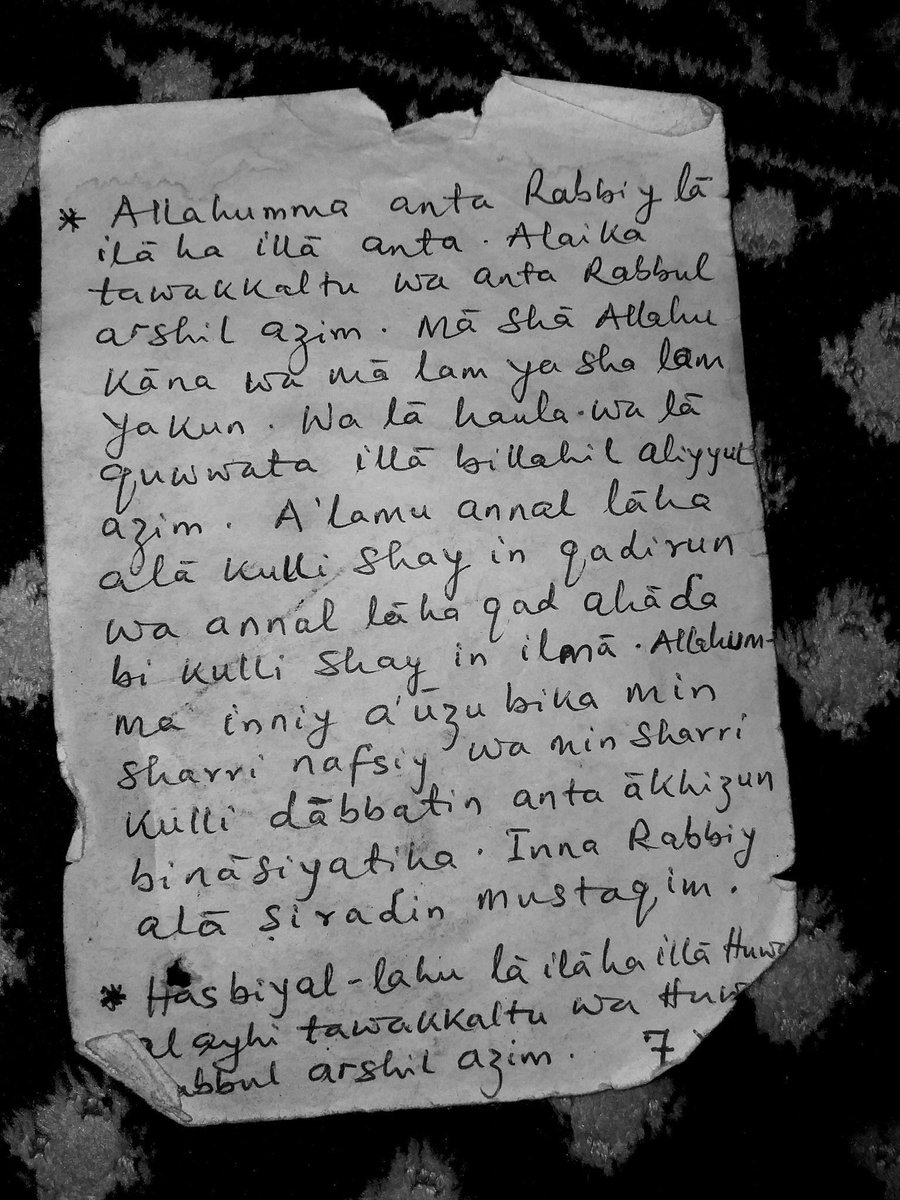 * Allahumma anta Rabbiy lā
ilāha illā anta. Alaika
tawakkaltu wa anta Rabbul
arshil azim. Mā shā Allahu
Kāna wa mā lam ya sha lam
yakun. Wa lā haula. wa lā
quwwata illā billahil aliyyul
azim. A'lamu annal lāha
alā kulli shay in qadirun
wa annal lāha qad ahāda
bi kulli shay in ilmā. Allahum-
ma inniy a'ūzu bika min
sharri nafsiy wa min sharri
kulli dābbatin anta ākhizun
bināsiyatiha. Inna Rabbiy
alā ṣiradin mustaqim.
* Hasbiyal-lahu lā ilāha illā Huwa
alayhi tawakkaltu wa
arshil azim. 7